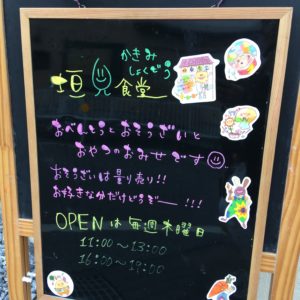 かきみ
しょくどう
垣見食堂
おべんとうとおそうざいと
おやつのおみせです
おそうざいは量り売り!!
お好きな分だけどうぞー!!!
OPENは毎週木曜日
11:00～13:00
16:00～19:00